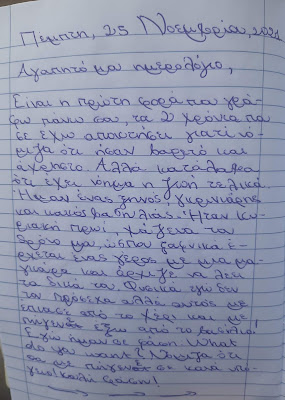 Πεμπτη, 25 Νοεμβρίου, 2021
Αγαπητό μου ημερολόγιο,
Είναι η πρώτη φορά που γρά-
φω πανω σου, τα 2 χρόνια που
σε έχω αποκτήσει γιατί νό-
μιζα ότι ήσουν βαρετό και
άχρηστο. Αλλά κατάλαβα
ότι έχει νόημα η ζωή τελικά.
Ήμουν ένας ξινος γκρινιάρης
και κακος μαθηλάς. Ήταν Κυ-
ριακή πρωί, χάζευα τον
δρόμο μου, ώσπου ξαφνικά έ-
ρχεται ένας γέρος με μια μα-
γκούρα και άρχιζε να λέει
τα δικά του. Φυσικά εγώ δεν
τον πρόσεχα αλλά αυτός με
επιασε από το χέρι και με
πήγαινε έξω από το βασίλειο!
Εγώ ήμουν σε φάση. What
do you want? Νόμιζα ότι
θα με πήγαινε σε κατα
φύγιο! Καλή φάση!